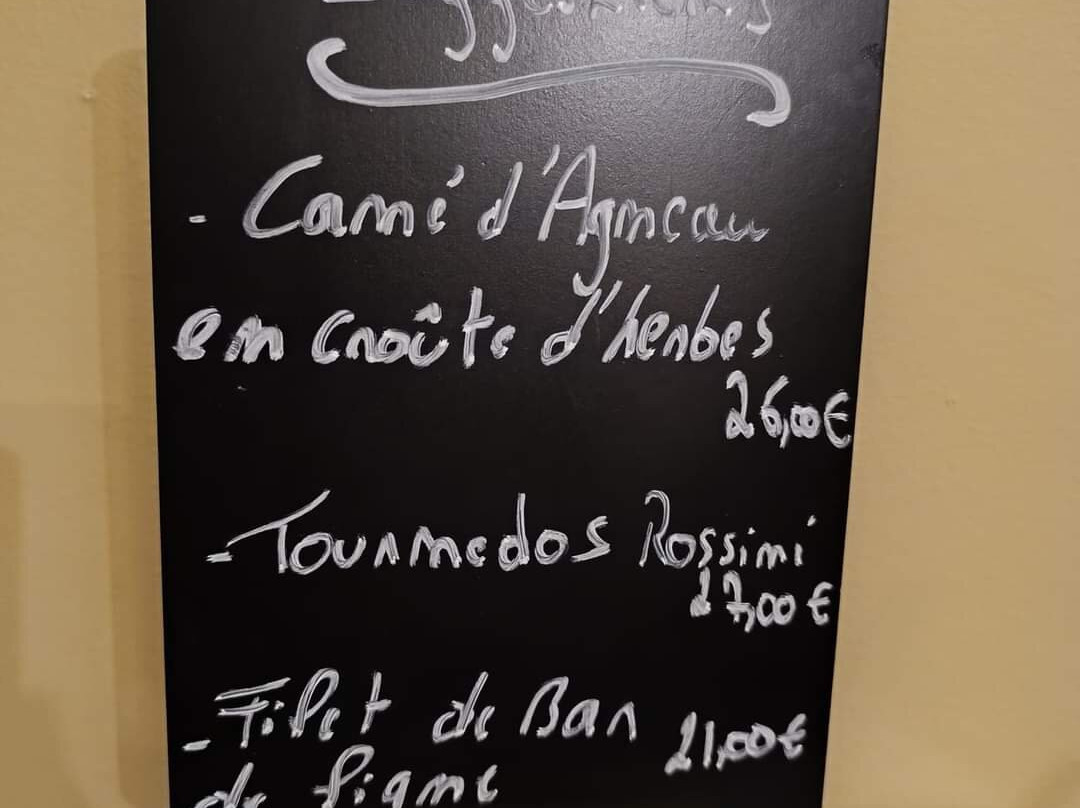 - Carré d'Agneau
en croûte d'herbes
26,00€
- Tournedos Rossini
27,00€
- Filet de Bar 21,00€
de ligne